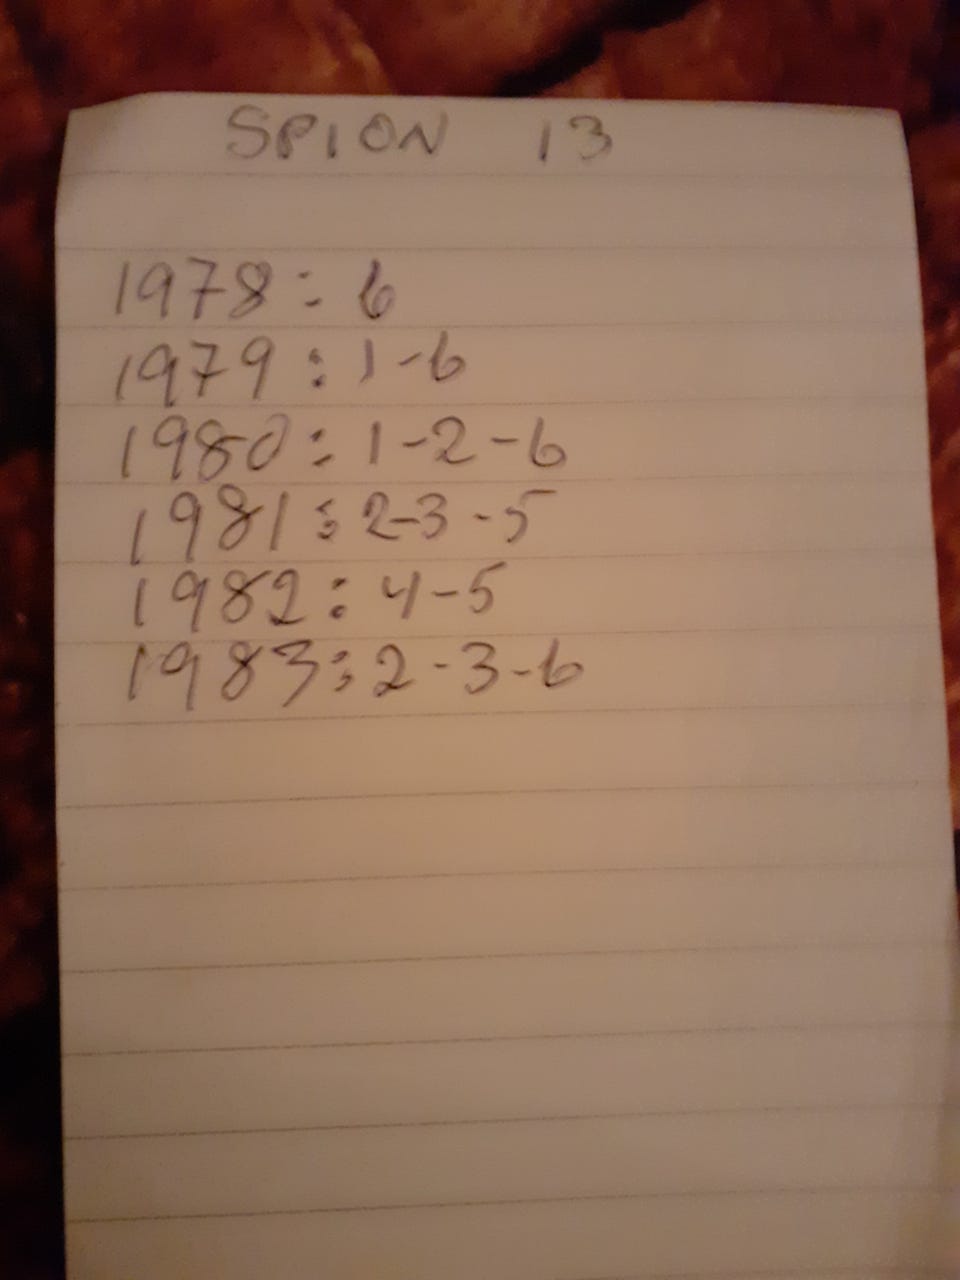 SPION 13
1978: 6
1979: 1-6
1980: 1-2-6
1981: 2-3-5
1982: 4-5
1983: 2-3-6